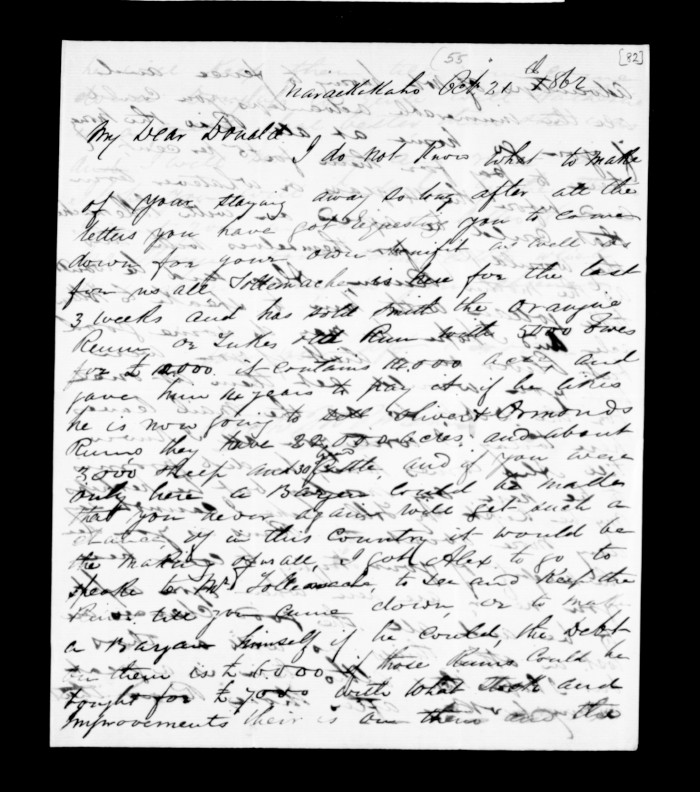 (55
[82]
Oct 21st 1862
My Dear Donald
I do not know what to make
of your staying away so long after all the
letters you have got requesting you to come
down for your own benefit as well as
for us all Tollemache is here for the last
3 weeks and has sold Smith the
Runn or Lukes old Runn with 5000 Ewes
for £ it contains acres and
gave him years to pay it if he likes
he is now going to sell Oliver & Ormonds
Runns they have 22,000 acres and about
3000 sheep and Cattle, and if you were
only here a Bargan could be made
that you never again will get such a
chance of in this Country it would be
the making of us all, I got Alex to go to
speake to Mr Tollemache, to see and keep the
Runs till you came down, or to make
a Bargan himself if he could, the Debt
on them is £6000, if those Runns could be
bought for £7000 with what stock and
improvements their is on them and the